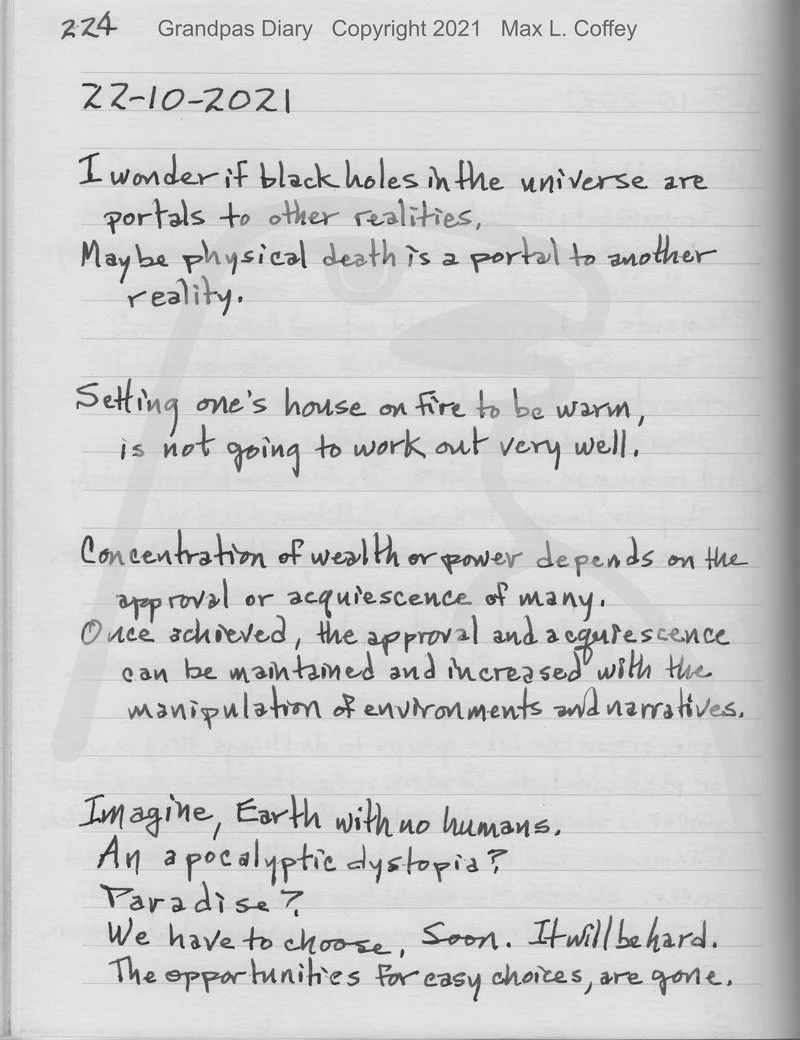 224 Grandpas Diary Copyright 2021 Max L. Coffey
22-10-2021
I wonder if black holes in the universe are
portals to other realities,
Maybe physical death is a portal to another
reality.
Setting one's house on fire to be warm,
is not going to work out very well.
Concentration of wealth or power depends on the
approval or acquiescence of many.
Once achieved, the approval and acquiescence
can be maintained and increased with the
manipulation of environments and narratives.
Imagine, Earth with no humans.
An apocalyptic dystopia?
Paradise?
We have to choose, Soon. It will be hard.
The opportunities for easy choices, are gone.